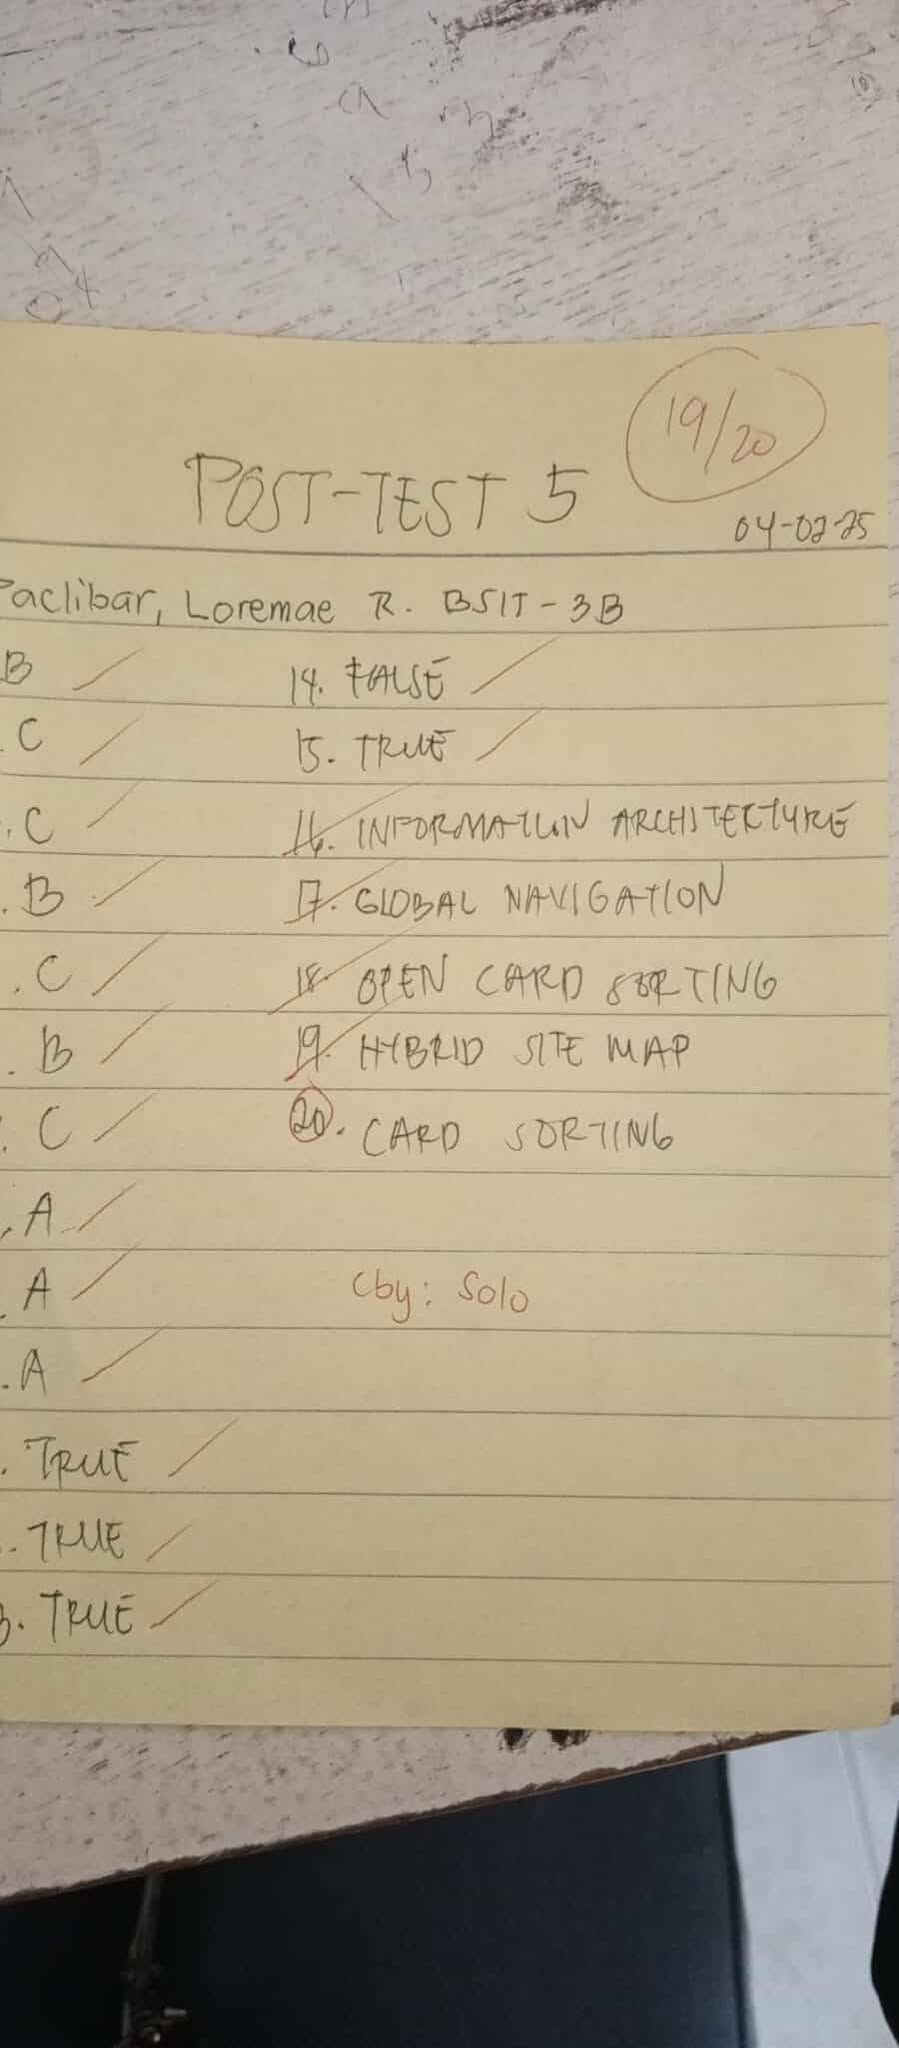 19/20
POST-TEST 5
04-02-25
Paclibar, Loremae R. BSIT-3B
B
. C
. C
. B
. C
. B
. C
. A
. A
. A
. TRUE
. TRUE
3. TRUE
14. FALSE
15. TRUE
16. INFORMATION ARCHITECTURE
17. GLOBAL NAVIGATION
18. OPEN CARD SORTING
19. HYBRID SITE MAP
20. CARD SORTING
Cby: Solo